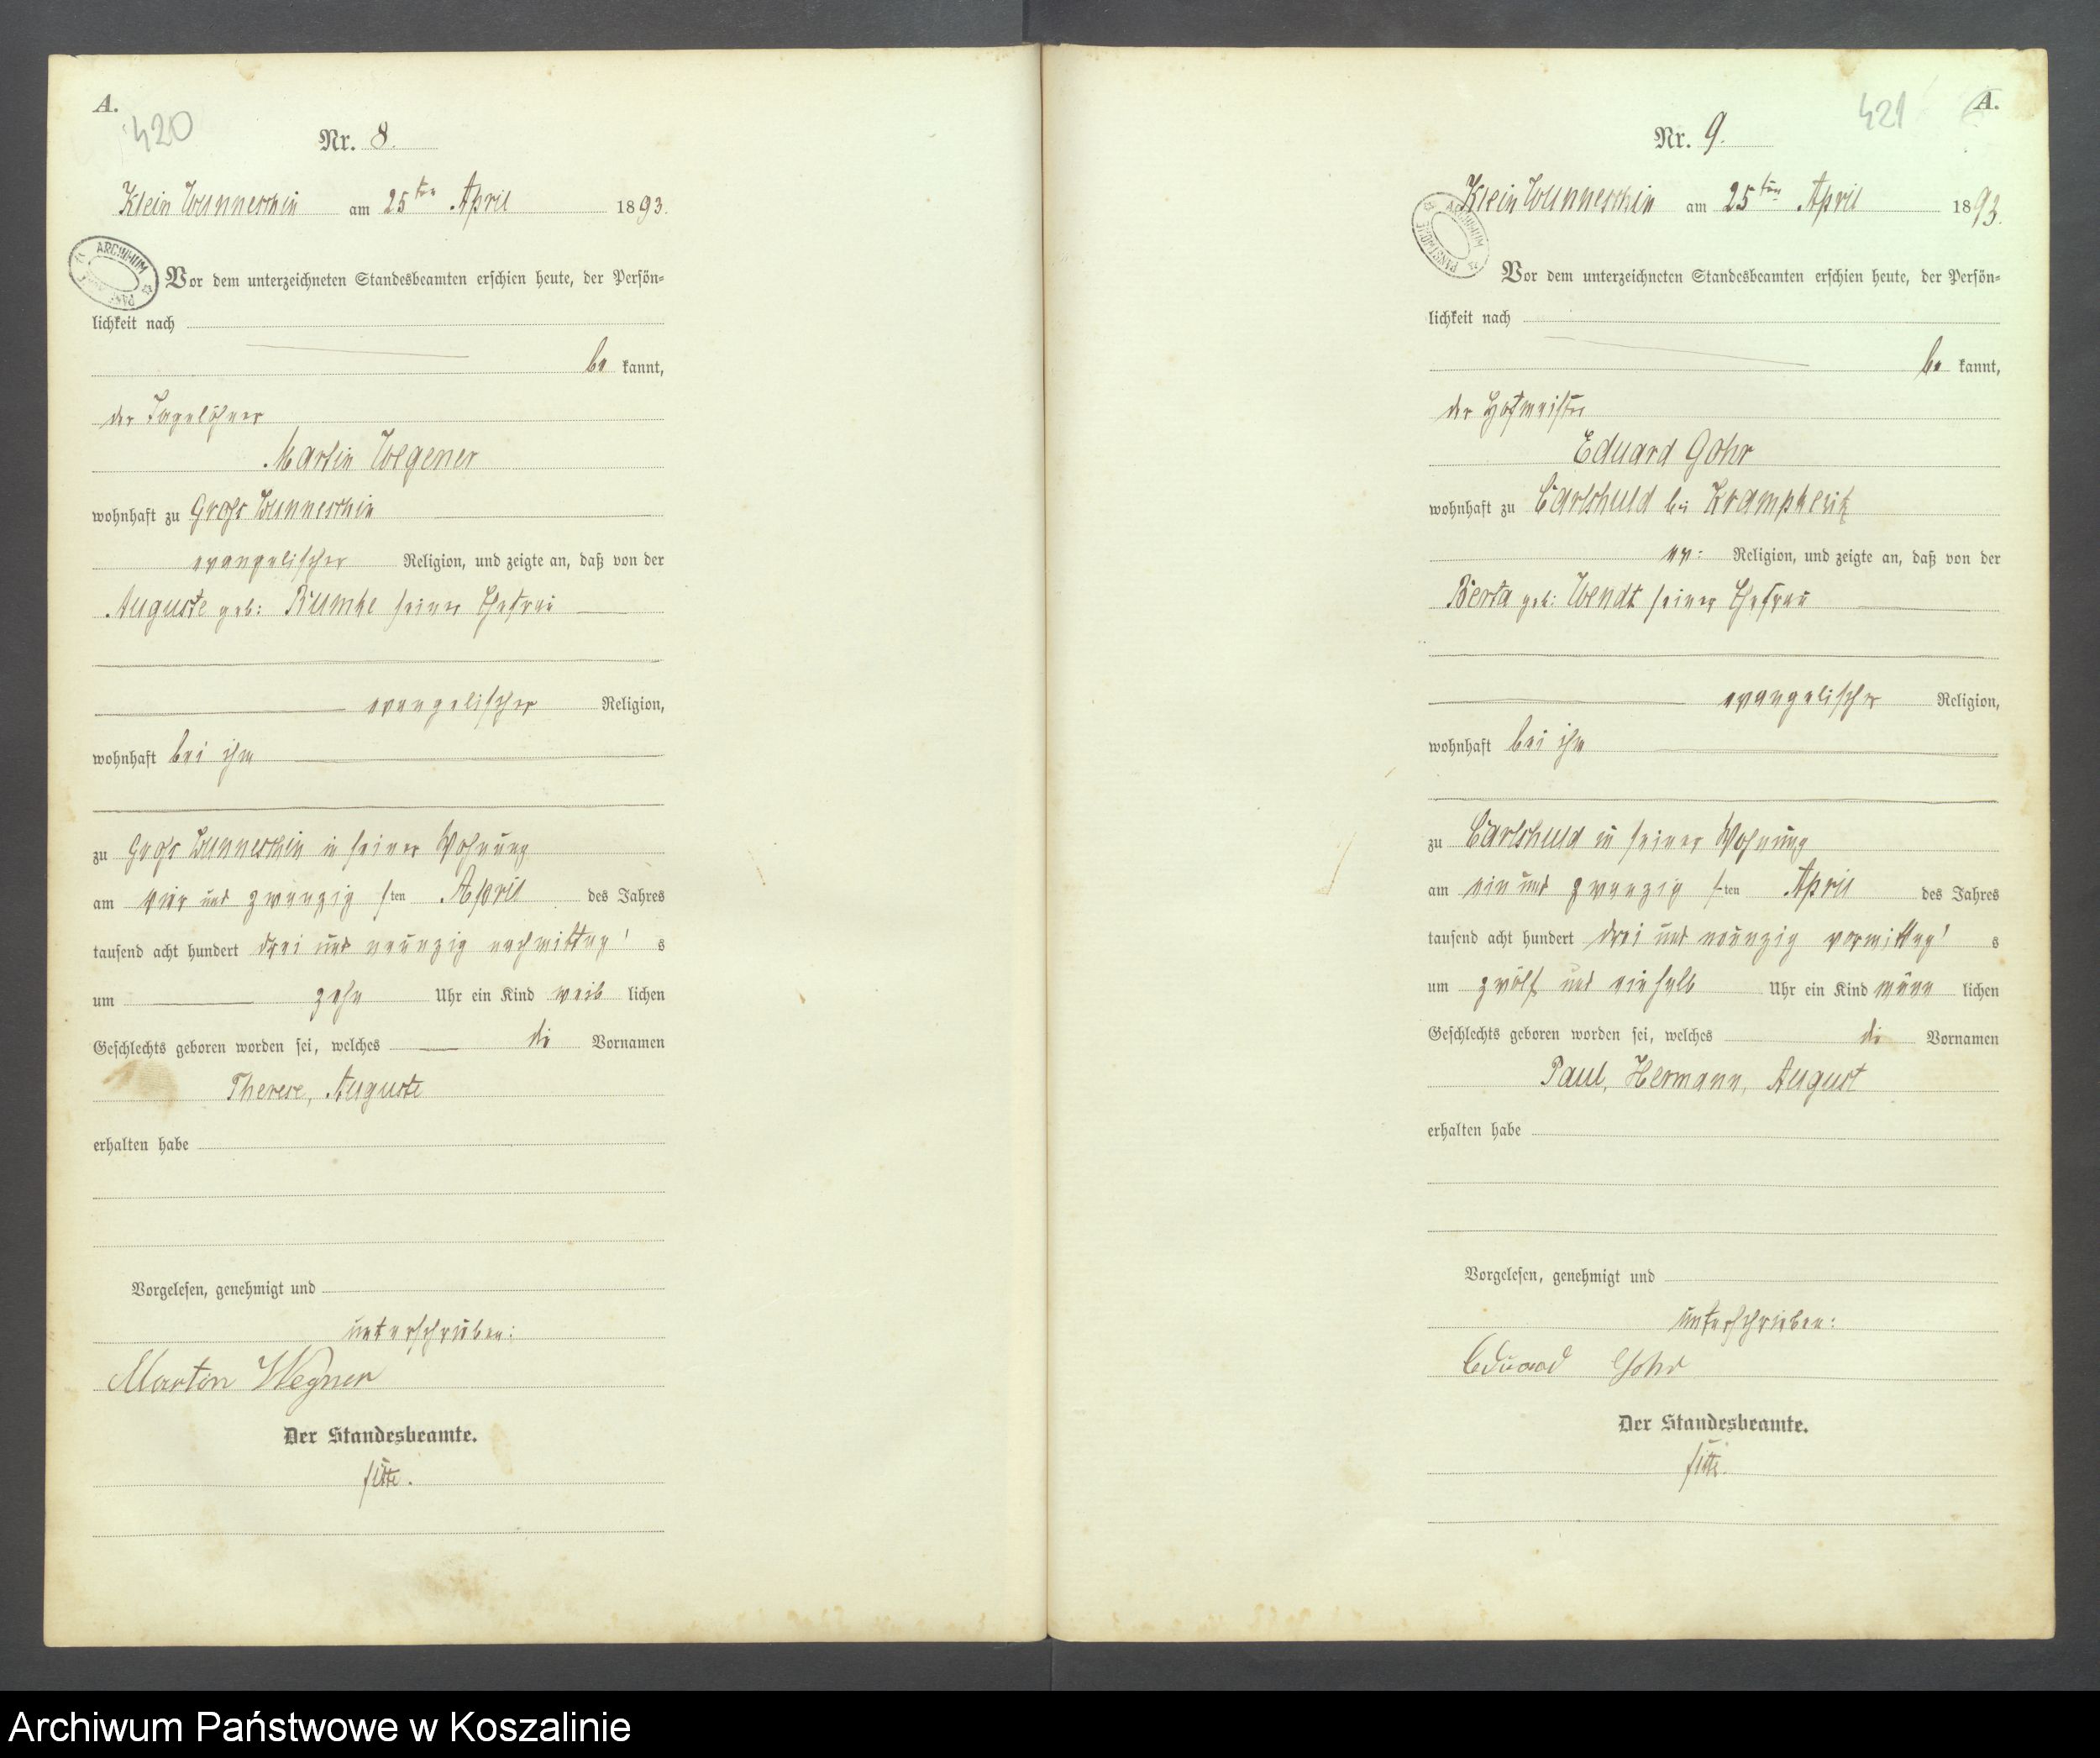 A.
420
Nr. 8.
Klein Wunneschin am 25ten April 1893.
ARCHIWUM
Vor dem unterzeichneten Standesbeamten erschien heute, der Persön=
lichkeit nach
be kannt,
der Tagelöhner
Martin Wegener
wohnhaft zu Groß Wunneschin
evangelischer Religion, und zeigte an, daß von der
Auguste geb: Bumke seiner Ehefrau
evangelischer Religion,
wohnhaft bei ihm
zu Groß Wunneschin in seiner Wohnung
am vier und zwanzig sten April des Jahres
tausend acht hundert drei und neunzig nachmittag's
um zehn Uhr ein Kind weib lichen
Geschlechts geboren worden sei, welches die Vornamen
Therese, Auguste
erhalten habe
Vorgelesen, genehmigt und
unterschrieben:
Martin Wegner
Der Standesbeamte.
A.
421
Nr. 9.
Klein Wunneschin am 25ten April 1893.
ARCHIWUM
Vor dem unterzeichneten Standesbeamten erschien heute, der Persön=
lichkeit nach
be kannt,
der Hofmeister
Eduard Gohr
wohnhaft zu Carlshuld bei
ev: Religion, und zeigte an, daß von der
Berta geb: Wendt seiner Ehefrau
evangelischer Religion,
wohnhaft bei ihm
zu Carlshuld in seiner Wohnung
am ein und zwanzig sten April des Jahres
tausend acht hundert drei und neunzig vormittag's
um zwölf und einhalb Uhr ein Kind männ lichen
Geschlechts geboren worden sei, welches die Vornamen
Paul, Hermann, August
erhalten habe
Vorgelesen, genehmigt und
unterschrieben:
Eduard Gohr
Der Standesbeamte.
Archiwum Państwowe w Koszalinie